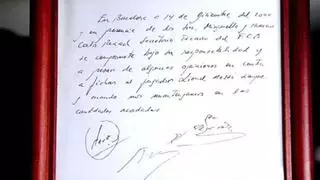 En Barcelona, a 14 de diciembre del 2000
y en presencia de los Srs. Minguella y Horacio
Carles Rexach Secretario Técnico del F.C.B.
se compromete bajo su responsabilidad y
a pesar de algunas opiniones en contra
a fichar al jugador Lionel Messi siempre
y cuando nos mantengamos en las
cantidades acordadas